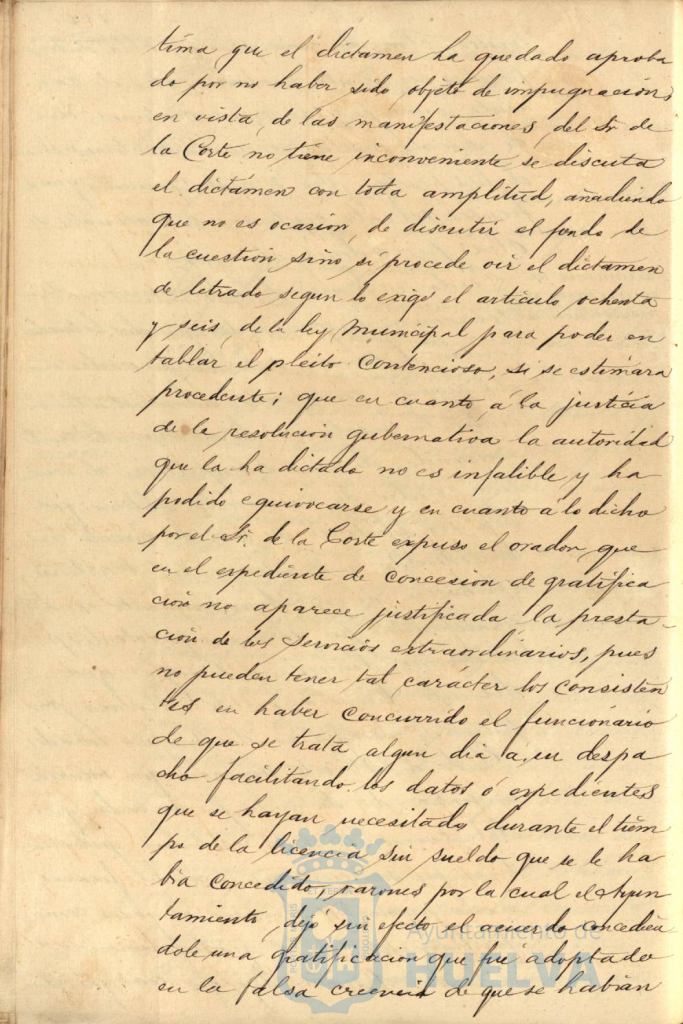 tima que el dictamen ha quedado aproba
do por no haber sido objeto de impugnación,
en vista de las manifestaciones del Sr. de
la Corte no tiene inconveniente se discuta
el dictámen con toda amplitud, añadiendo
que no es ocasión de discutir el fondo de
la cuestión sino si procede oir el dictamen
de letrado segun lo exige el artículo ochenta
y seis de la ley Municipal para poder en
tablar el pleito Contencioso, si se estimára
procedente; que en cuanto á la justicia
de la resolución gubernativa la autoridad
que la ha dictado no es infalible y ha
podido equivocarse y en cuanto á lo dicho
por el Sr. de la Corte expuso el orador que
en el expediente de concesion de gratifica
ción no aparece justificada la presta-
ción de los servicios extraordinarios, pues
no pueden tener tal carácter los consisten
tes en haber concurrido el funcionario
de que se trata algun dia á su despa
cho facilitando los datos ó expedientes
que se hayan necesitado durante el tiem
po de la licencia sin sueldo que se le ha
bia concedido, razones por la cual el Ayun
tamiento dejó sin efecto el acuerdo concedien
dole una gratificacion que fué adoptado
en la falsa creencia de que se habian
Ayuntamiento de
HUELVA